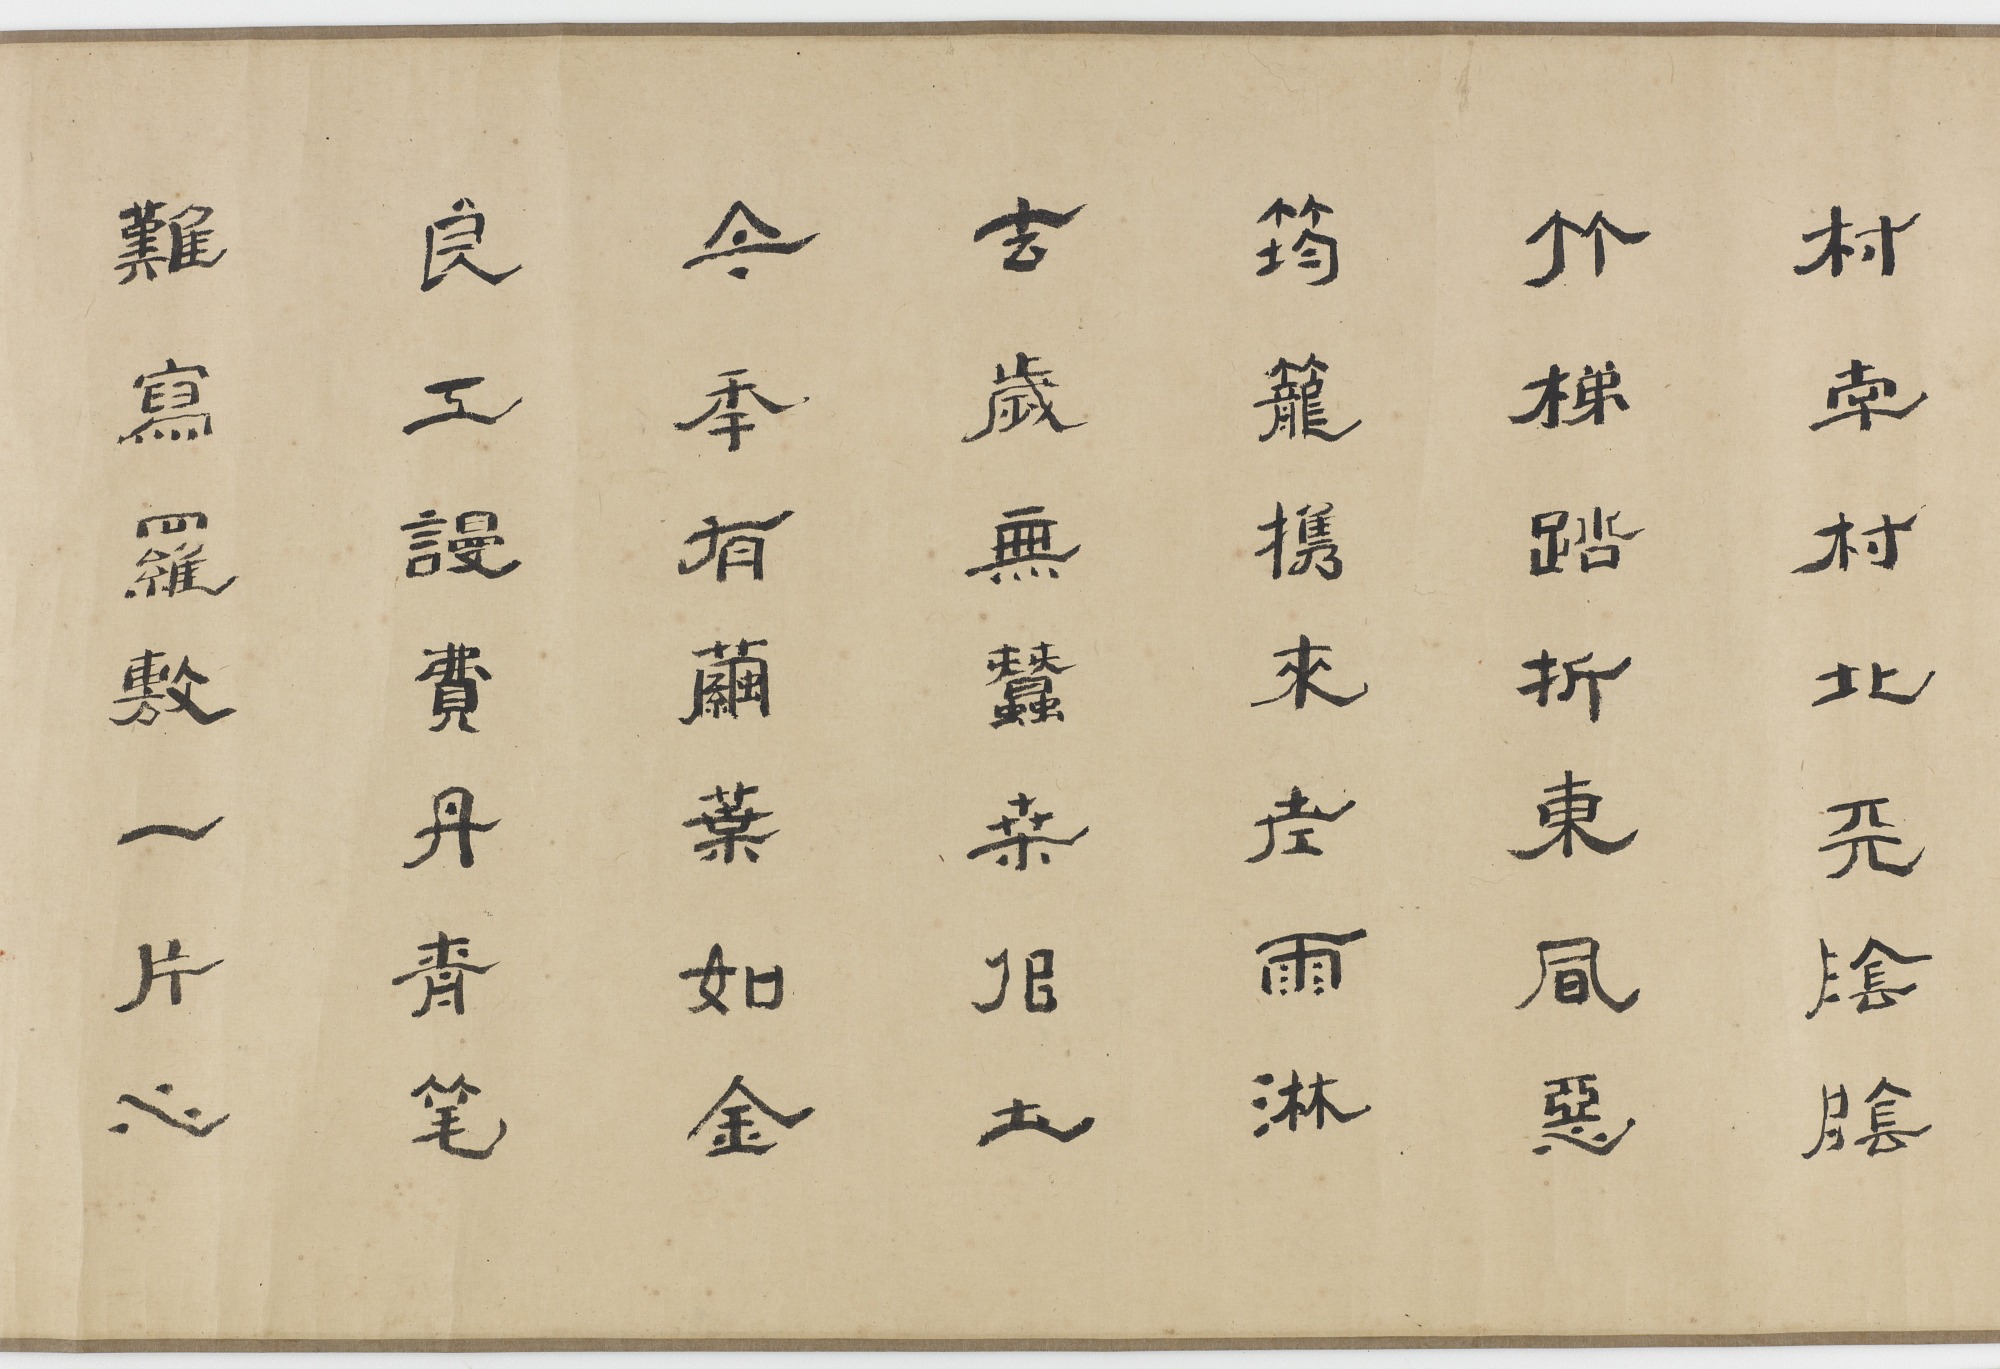 村南村北天陰陰
竹梯踏折東風惡
筠籠携來雨淋
去歲無蠶桑佀土
今季有繭葉如金
良工謾費丹青笔
難寫羅敷一片心